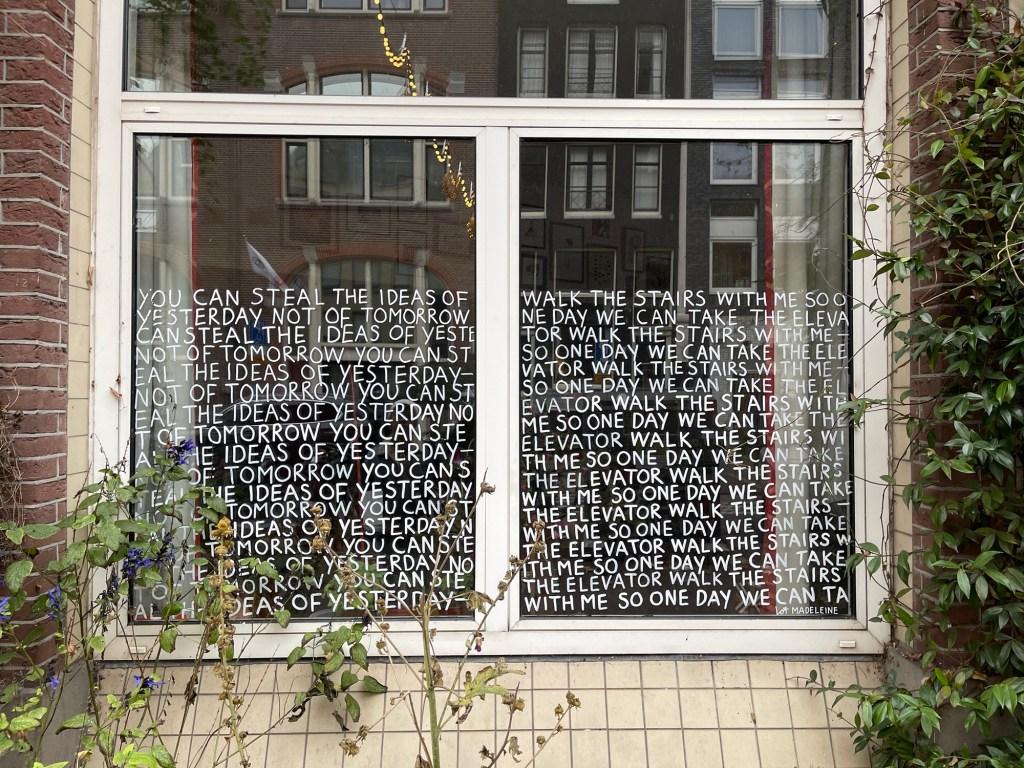 YOU CAN STEAL THE IDEAS OF
YESTERDAY NOT OF TOMORROW
CAN STEAL THE IDEAS OF YESTE
NOT OF TOMORROW YOU CAN ST
EAL THE IDEAS OF YESTERDAY-
NOT OF TOMORROW YOU CAN ST
EAL THE IDEAS OF YESTERDAY NO
T OF TOMORROW YOU CAN STE
AL THE IDEAS OF YESTERDAY-
NOT OF TOMORROW YOU CAN S
TEAL THE IDEAS OF YESTERDAY
OF TOMORROW YOU CAN STE
IDEAS OF YESTERDAY N
TOMORROW YOU CAN STE
THE IDEAS OF YESTERDAY NO
TOMORROW YOU CAN STE
IDEAS OF YESTERDAY-
WALK THE STAIRS WITH ME SO O
NE DAY WE CAN TAKE THE ELEVA
TOR WALK THE STAIRS WITH ME-
SO ONE DAY WE CAN TAKE THE ELE
VATOR WALK THE STAIRS WITH ME-
SO ONE DAY WE CAN TAKE THE EL
EVATOR WALK THE STAIRS WITH
ME SO ONE DAY WE CAN TAKE THE
ELEVATOR WALK THE STAIRS WI
TH ME SO ONE DAY WE CAN TAKE
THE ELEVATOR WALK THE STAIRS
WITH ME SO ONE DAY WE CAN TAKE
THE ELEVATOR WALK THE STAIRS -
WITH ME SO ONE DAY WE CAN TAKE
THE ELEVATOR WALK THE STAIRS W
ITH ME SO ONE DAY WE CAN TAKE
THE ELEVATOR WALK THE STAIRS
WITH ME SO ONE DAY WE CAN TA
MADELEINE